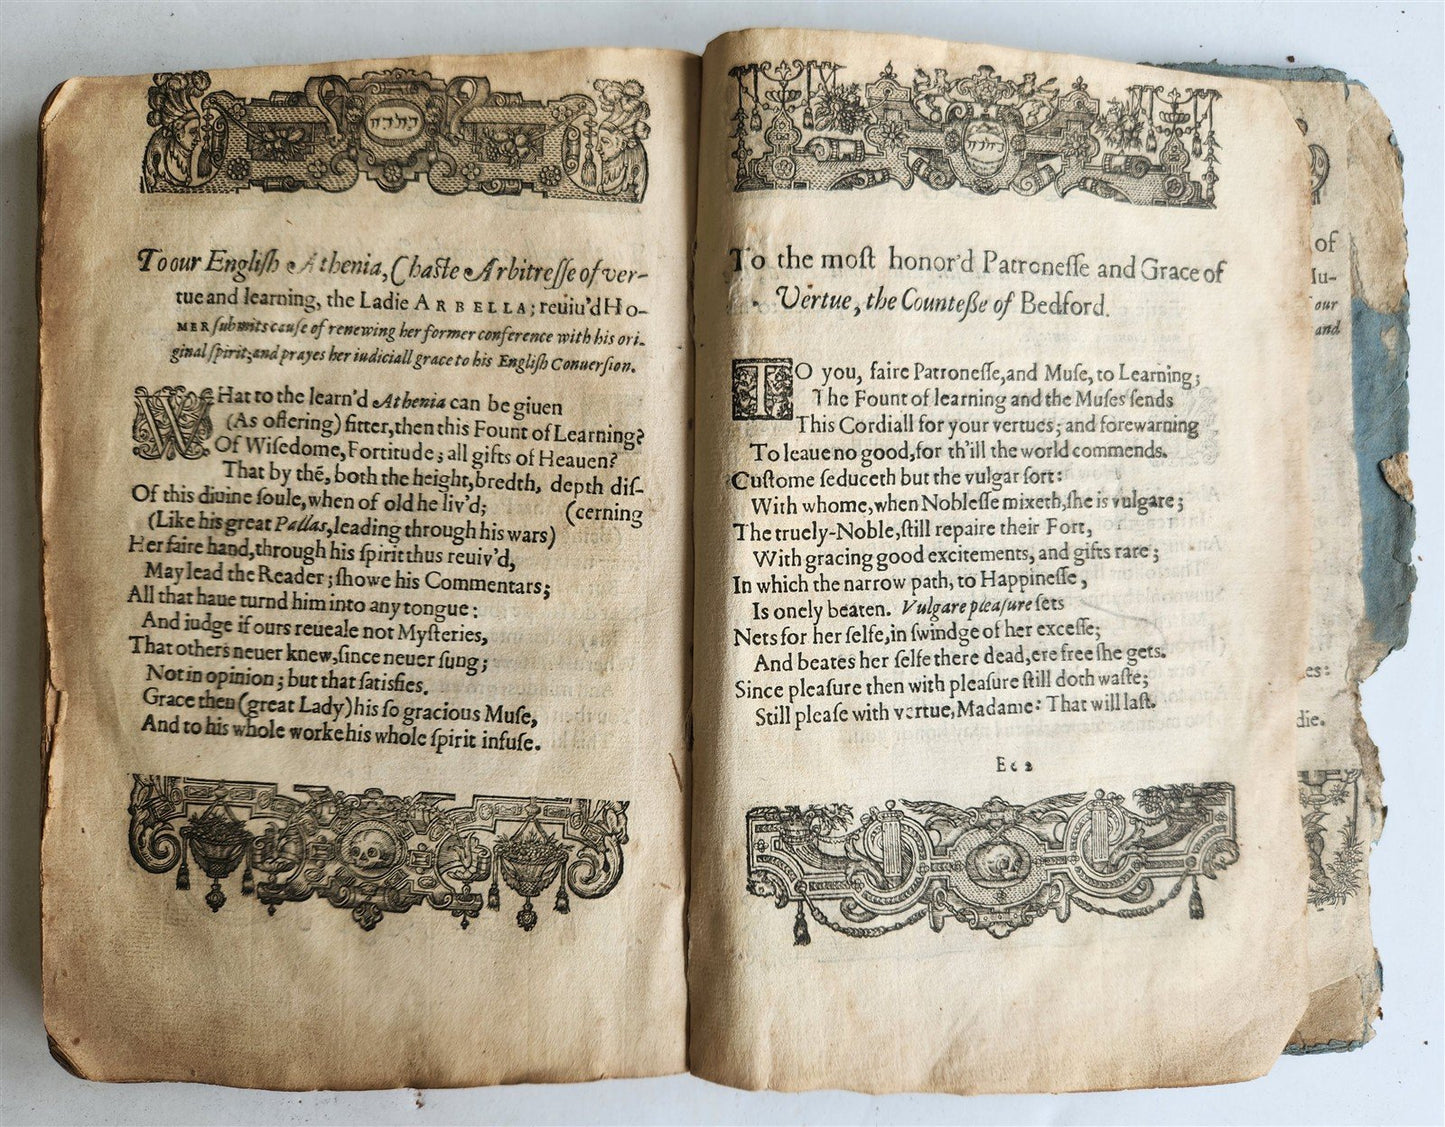 To our English Athenia, Chaste Arbitresse of ver-
tue and learning, the Ladie ARBELLA; reuiu'd HO-
MER submits cause of renewing her former conference with his ori-
ginal spirit; and prayes her iudiciall grace to his English Conuersion.
WHat to the learn'd Athenia can be giuen
(As offering) fitter, then this Fount of Learning?
Of Wisedome, Fortitude; all gifts of Heauen?
That by thē, both the height, bredth, depth dis-
(cerning
Of this diuine soule, when of old he liv'd;
(Like his great Pallas, leading through his wars)
Her faire hand, through his spirit thus reuiv'd,
May lead the Reader; showe his Commentars;
All that haue turnd him into any tongue:
And iudge if ours reueale not Mysteries,
That others neuer knew, since neuer sung;
Not in opinion; but that satisfies.
Grace then (great Lady) his so gracious Muse,
And to his whole worke his whole spirit infuse.
To the most honor'd Patronesse and Grace of
Vertue, the Countesse of Bedford.
TO you, faire Patronesse, and Muse, to Learning;
The Fount of learning and the Muses sends
This Cordiall for your vertues; and forewarning
To leaue no good, for th'ill the world commends.
Custome seduceth but the vulgar sort:
With whome, when Noblesse mixeth, she is vulgare;
The truely-Noble, still repaire their Fort,
With gracing good excitements, and gifts rare;
In which the narrow path, to Happinesse,
Is onely beaten. Vulgare pleasure sets
Nets for her selfe, in swindge of her excesse;
And beates her selfe there dead, ere free she gets.
Since pleasure then with pleasure still doth waste;
Still please with vertue, Madame: That will last.
Ee 2
of
Mu-
our
and
es:
die.